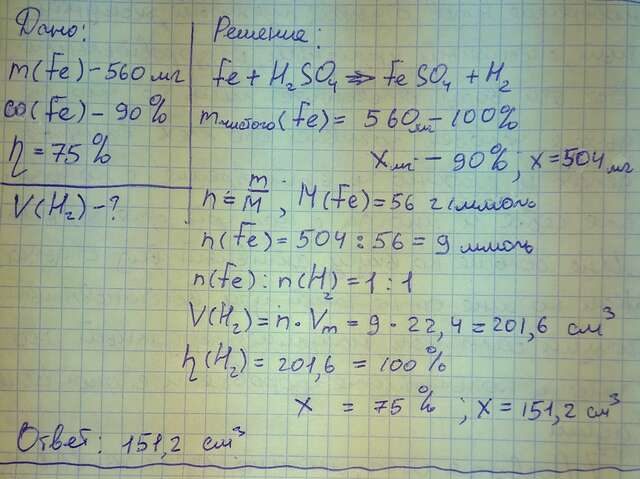 Дано:
m(Fe) - 560 мг
ω(Fe) - 90%
η = 75%
V(H₂) - ?
Решение:
Fe + H₂SO₄ ⇒ FeSO₄ + H₂
m чистого (Fe) = 560 мг - 100%
X мг - 90% ; x = 504 мг
n = m/M ; M(Fe) = 56 г/ммоль
n(Fe) = 504 : 56 = 9 ммоль
n(Fe) : n(H₂) = 1 : 1
V(H₂) = n · Vm = 9 · 22,4 = 201,6 см³
η(H₂) = 201,6 = 100%
x = 75% ; x = 151,2 см³
Ответ: 151,2 см³